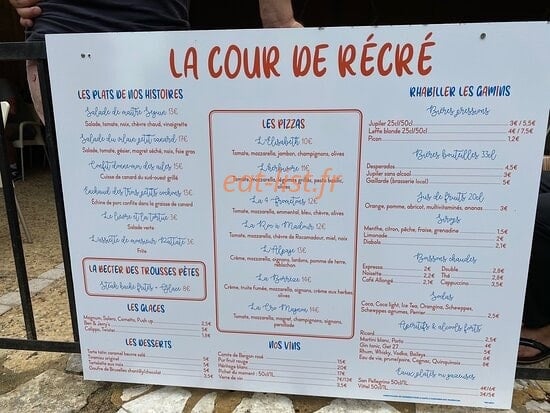 LA COUR DE RÉCRÉ
LES PLATS DE NOS HISTOIRES
Salade de maître Seguin 13€
Salade, tomate, noix, chèvre chaud, vinaigrette
Salade du vilain petit canard 17€
Salade, tomate, gésier, magret séché, noix, foie gras
Confit donne-moi des ailes 15€
Cuisse de canard du sud-ouest grillé
L'échaud des trois petits cochons 15€
Échine de porc confite dans la graisse de canard
Le lièvre et la tortue 3€
Salade verte
L'assiette de monsieur Patate 3€
Frite
LA BECTER DES TROUSSES PÈTES
Steak haché frites + glace 8€
LES GLACES
Magnum, Solero, Cornetto, Push up
2,5€
Ben & Jerry's
Calippo, Twister
LES DESSERTS
Tarte tatin caramel beurre salé
Tiramisu original
Fondant
Gaufre de Bruxelles chantilly/chocolat
3,5€
LES PIZZAS
L'Elisabeth 10€
Tomate, mozzarella, jambon, champignons, olives
L'herbivore 11€
Tomate, mozzarella, aubergine grillé, pesto, olives
La 4 Frometons 12€
Tomate, mozzarella, emmental, bleu, chèvre, olives
La Roc à Madour 12€
Tomate, mozzarella, chèvre de Rocamadour, miel, noix
L'Alpage 13€
Crème, mozzarella, oignons, lardons, pomme de terre,
reblochon
La Corrèze 14€
Crème, truite fumée, mozzarella, oignons, crème aux herbes,
olives
La Cro Magnon 14€
Tomate, mozzarella, magret, champignons, oignons,
persillade
NOS VINS
Comte de Bergin rosé
Pur fruit rouge
Héritage blanc
15€
17€
20€
Verre de vin
RHABILLER LES GAMINS
Bières pressions
Jupiler 25cl/50cl 3€ / 5,5€
Leffe blonde 25cl/50cl 4€ / 7,5€
Picon 1,2€
Bières bouteilles 33cl
Desperados 4,5€
Jupiler sans alcool 3€
Gaillarde (brasserie local) 5€
Jus de fruits 20cl
Orange, pomme, abricot, multivitaminés, ananas 3€
Sirops
Menthe, citron, pêche, fraise, grenadine 1,5€
Limonade 2€
Diabolo 2,1€
Boissons chaudes
Espresso 2€ Double 2,8€
Noisette 2,2€ Thé 2,8€
Café Allongé 2,1€ Cappuccino 3,5€
Sodas
Coca, Coca light, Ice Tea, Orangina, Schweppes,
Schweppes agrumes, Perrier 2,5€
Apéritifs & alcools forts
Ricard
Martini blanc, Porto
Gin tonic, Get 27
Rhum, Whisky, Vodka, Baileys
Eau de vie, prunelijaune, Cognac, Quinquinoix
Eaux plates ou gazeuses
San Pellegrino 50cl/1L 4€/6€
Vittel 50cl/1L
eat-list.fr